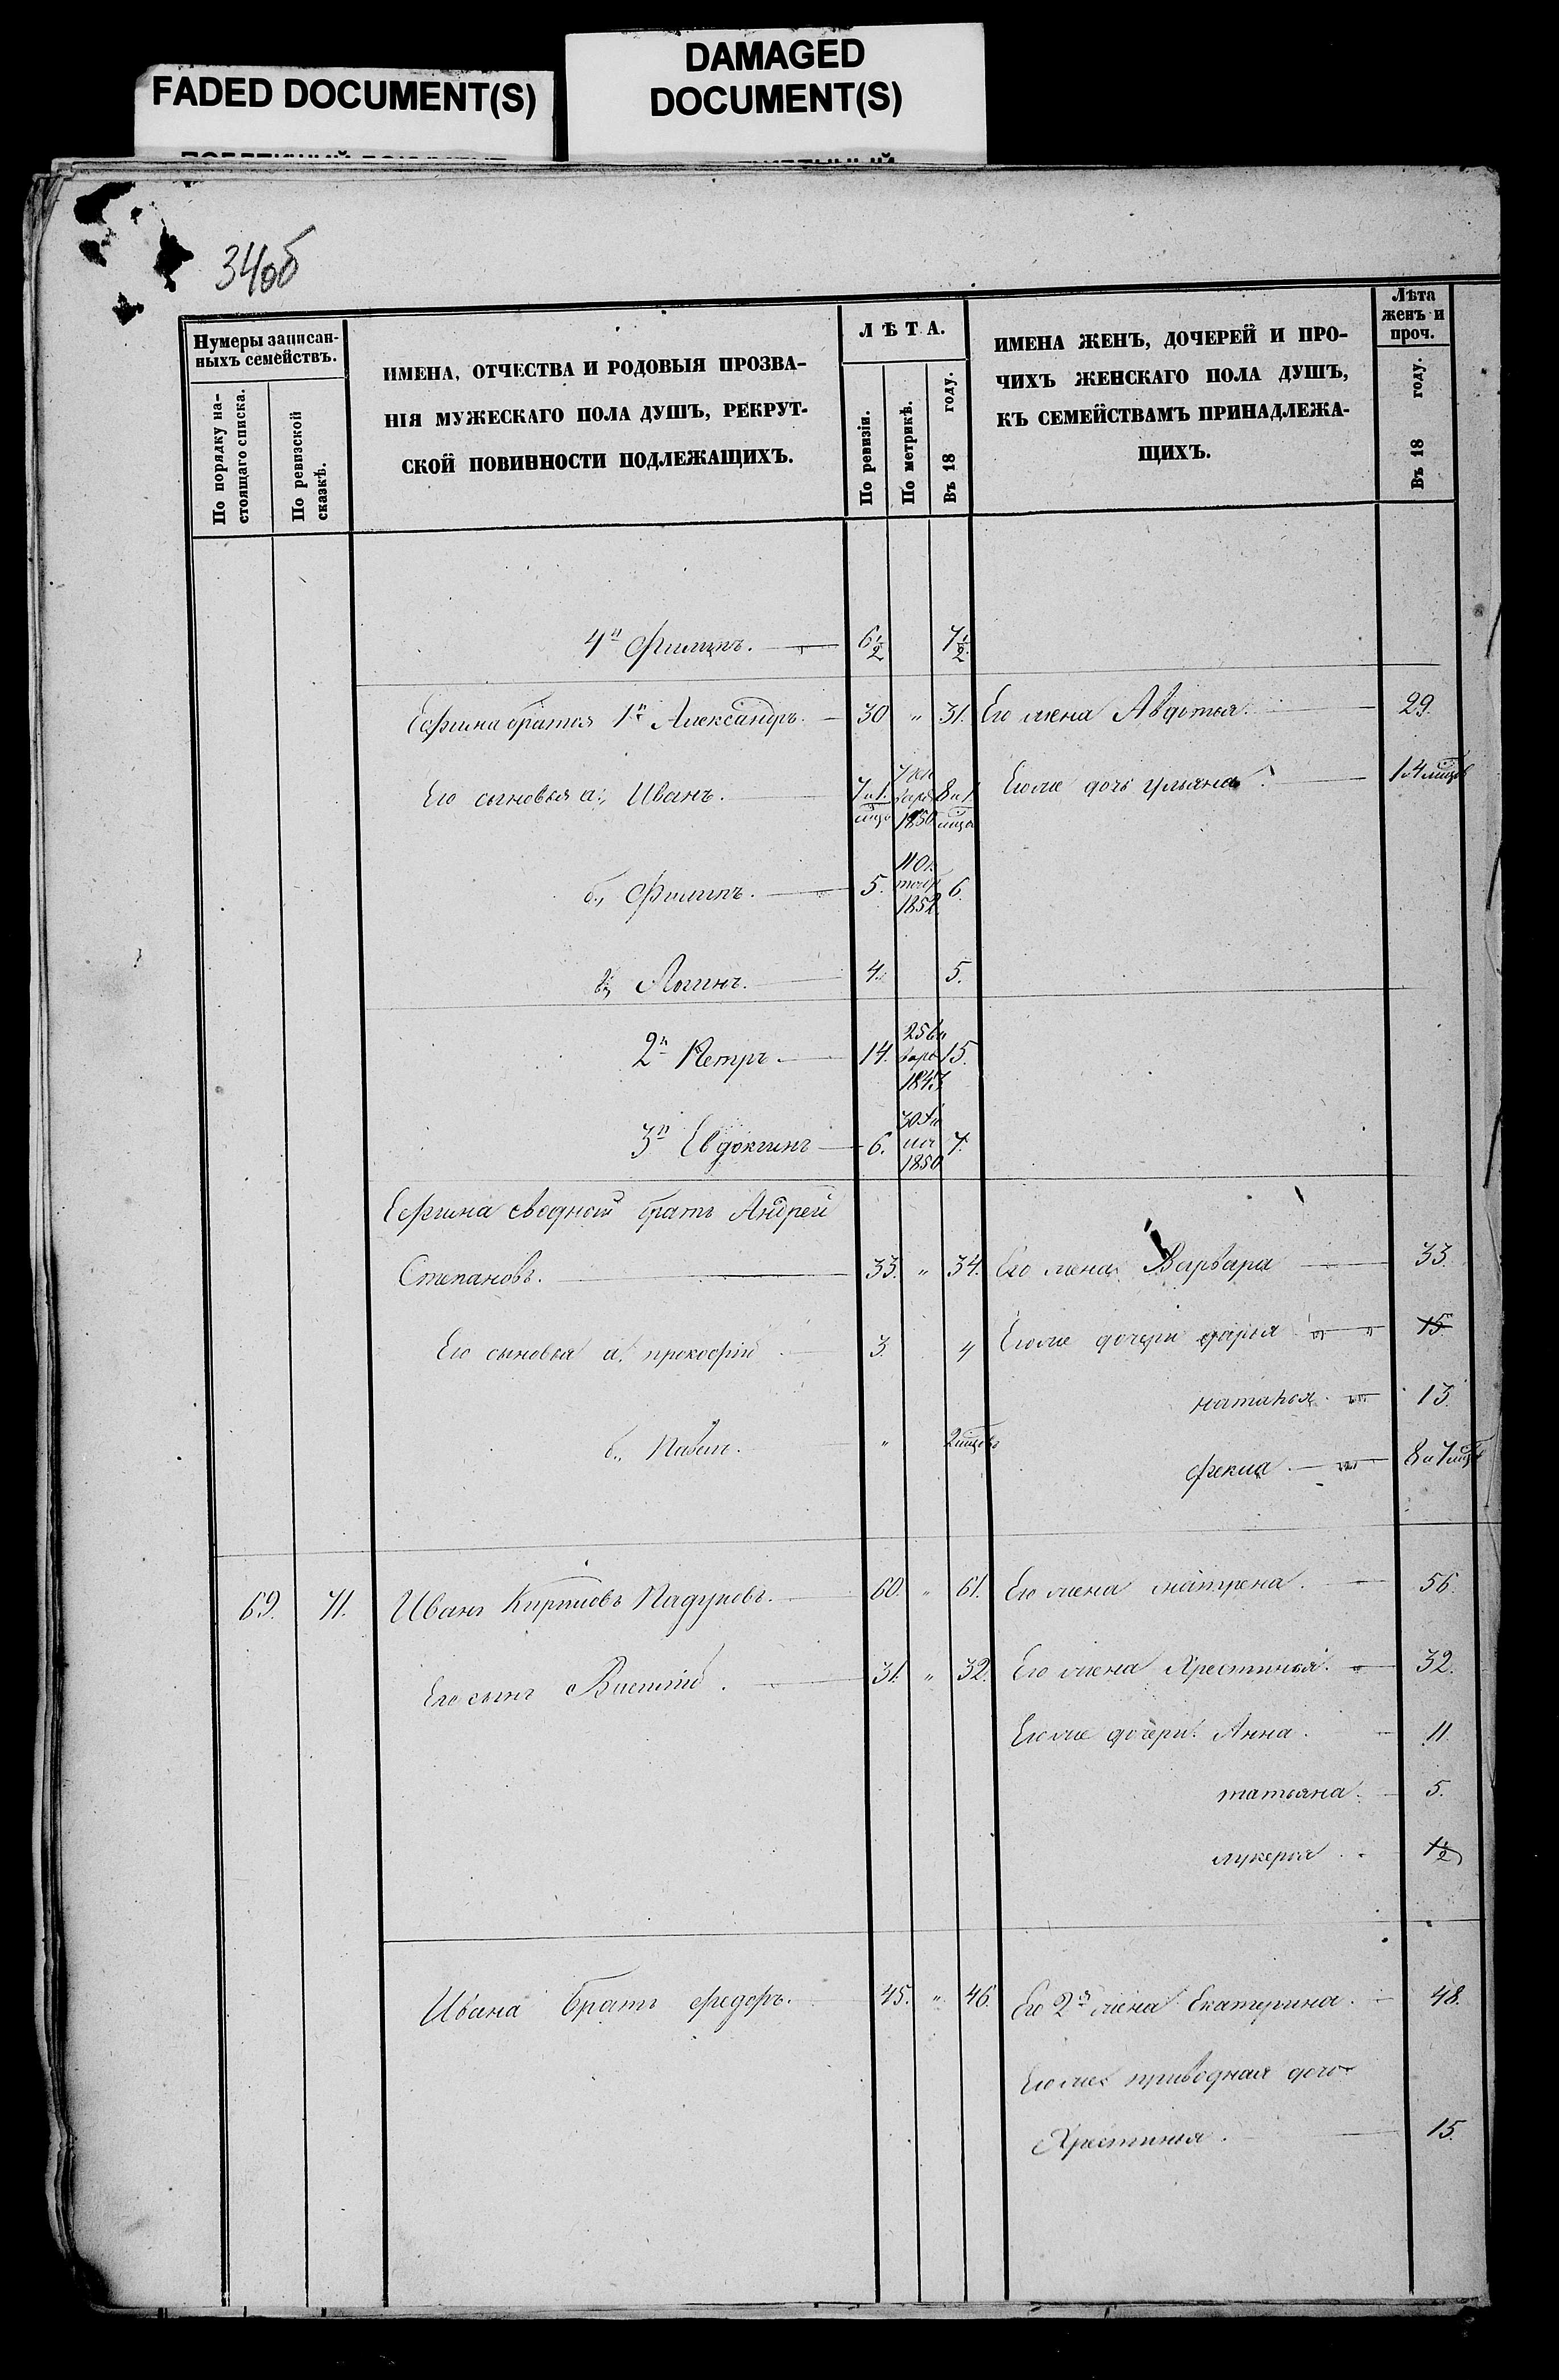 FADED DOCUMENT(S)
DAMAGED
DOCUMENT(S)
34об
Нумеры записан-
ныхъ семействъ.
По порядку на-
стоящаго списка.
По ревизской
сказкѣ.
ИМЕНА, ОТЧЕСТВА И РОДОВЫЯ ПРОЗВА-
НІЯ МУЖЕСКАГО ПОЛА ДУШЪ, РЕКРУТ-
СКОЙ ПОВИННОСТИ ПОДЛЕЖАЩИХЪ.
ЛѢТА.
По ревизіи.
По метрикѣ.
Въ 18 году.
ИМЕНА ЖЕНЪ, ДОЧЕРЕЙ И ПРО-
ЧИХЪ ЖЕНСКАГО ПОЛА ДУШЪ,
КЪ СЕМЕЙСТВАМЪ ПРИНАДЛЕЖА-
ЩИХЪ.
Лѣта
женъ и
проч.
Въ 18 году.
4й Филипъ. 6½ 7½
Ефима братья 1й Александръ. 30 " 31. Его жена Авдотья. 29.
Его сыновья а., Иванъ. 7 и 1 мцъ 7 Ян варя 1850 8 и 1 мцъ Егоже дочь ульяна. 1 и 4 мцов
б., Филипъ. 5. 1 Ок тябр 1852 6.
в., Логинъ. 4. 5.
2й Петръ. 14. 25 Ян варя 1843 15.
3й Евдокимъ 6. 30 Iю ля 1850 7.
Ефима сводной братъ Андрей
Степановъ. 33. " 34. Его жена Варвара 33.
Его сыновья а. прокофій 3. 4 Егоже дочери дарья 15
наталья 13.
б., Павел. " 2 мцовъ
фекла 8 и 7 мцов
69. 71. Иванъ Кириловъ Падуковъ. 60. " 61. Его жена матрена. 56.
Его сынъ Василій. 31. " 32. Его жена Хрестинья. 32.
Егоже дочери. Анна. 11.
татьяна. 5.
лукерья. 1½
Ивана братъ федоръ. 45. " 46. Его 2я жена Екатерина. 48.
Егоже приводная дочь
Хрестинья. 15.